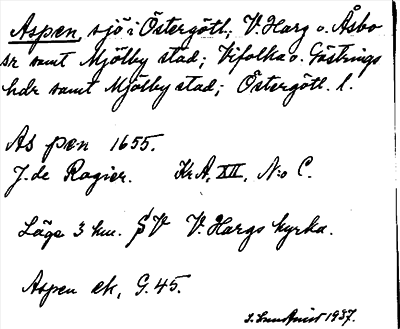 Aspen, sjö i Östergötl.; V. Harg o. Åsbo
sr samt Mjölby stad; Vifolka o. Göstrings
hdr samt Mjölby stad; Östergötl. l.
As pen 1655.
J. de Rogier. Kr A, XII, N:o C.
Läge 3 km. SV V. Hargs kyrka.
Aspen ek, G. 45.
1937.